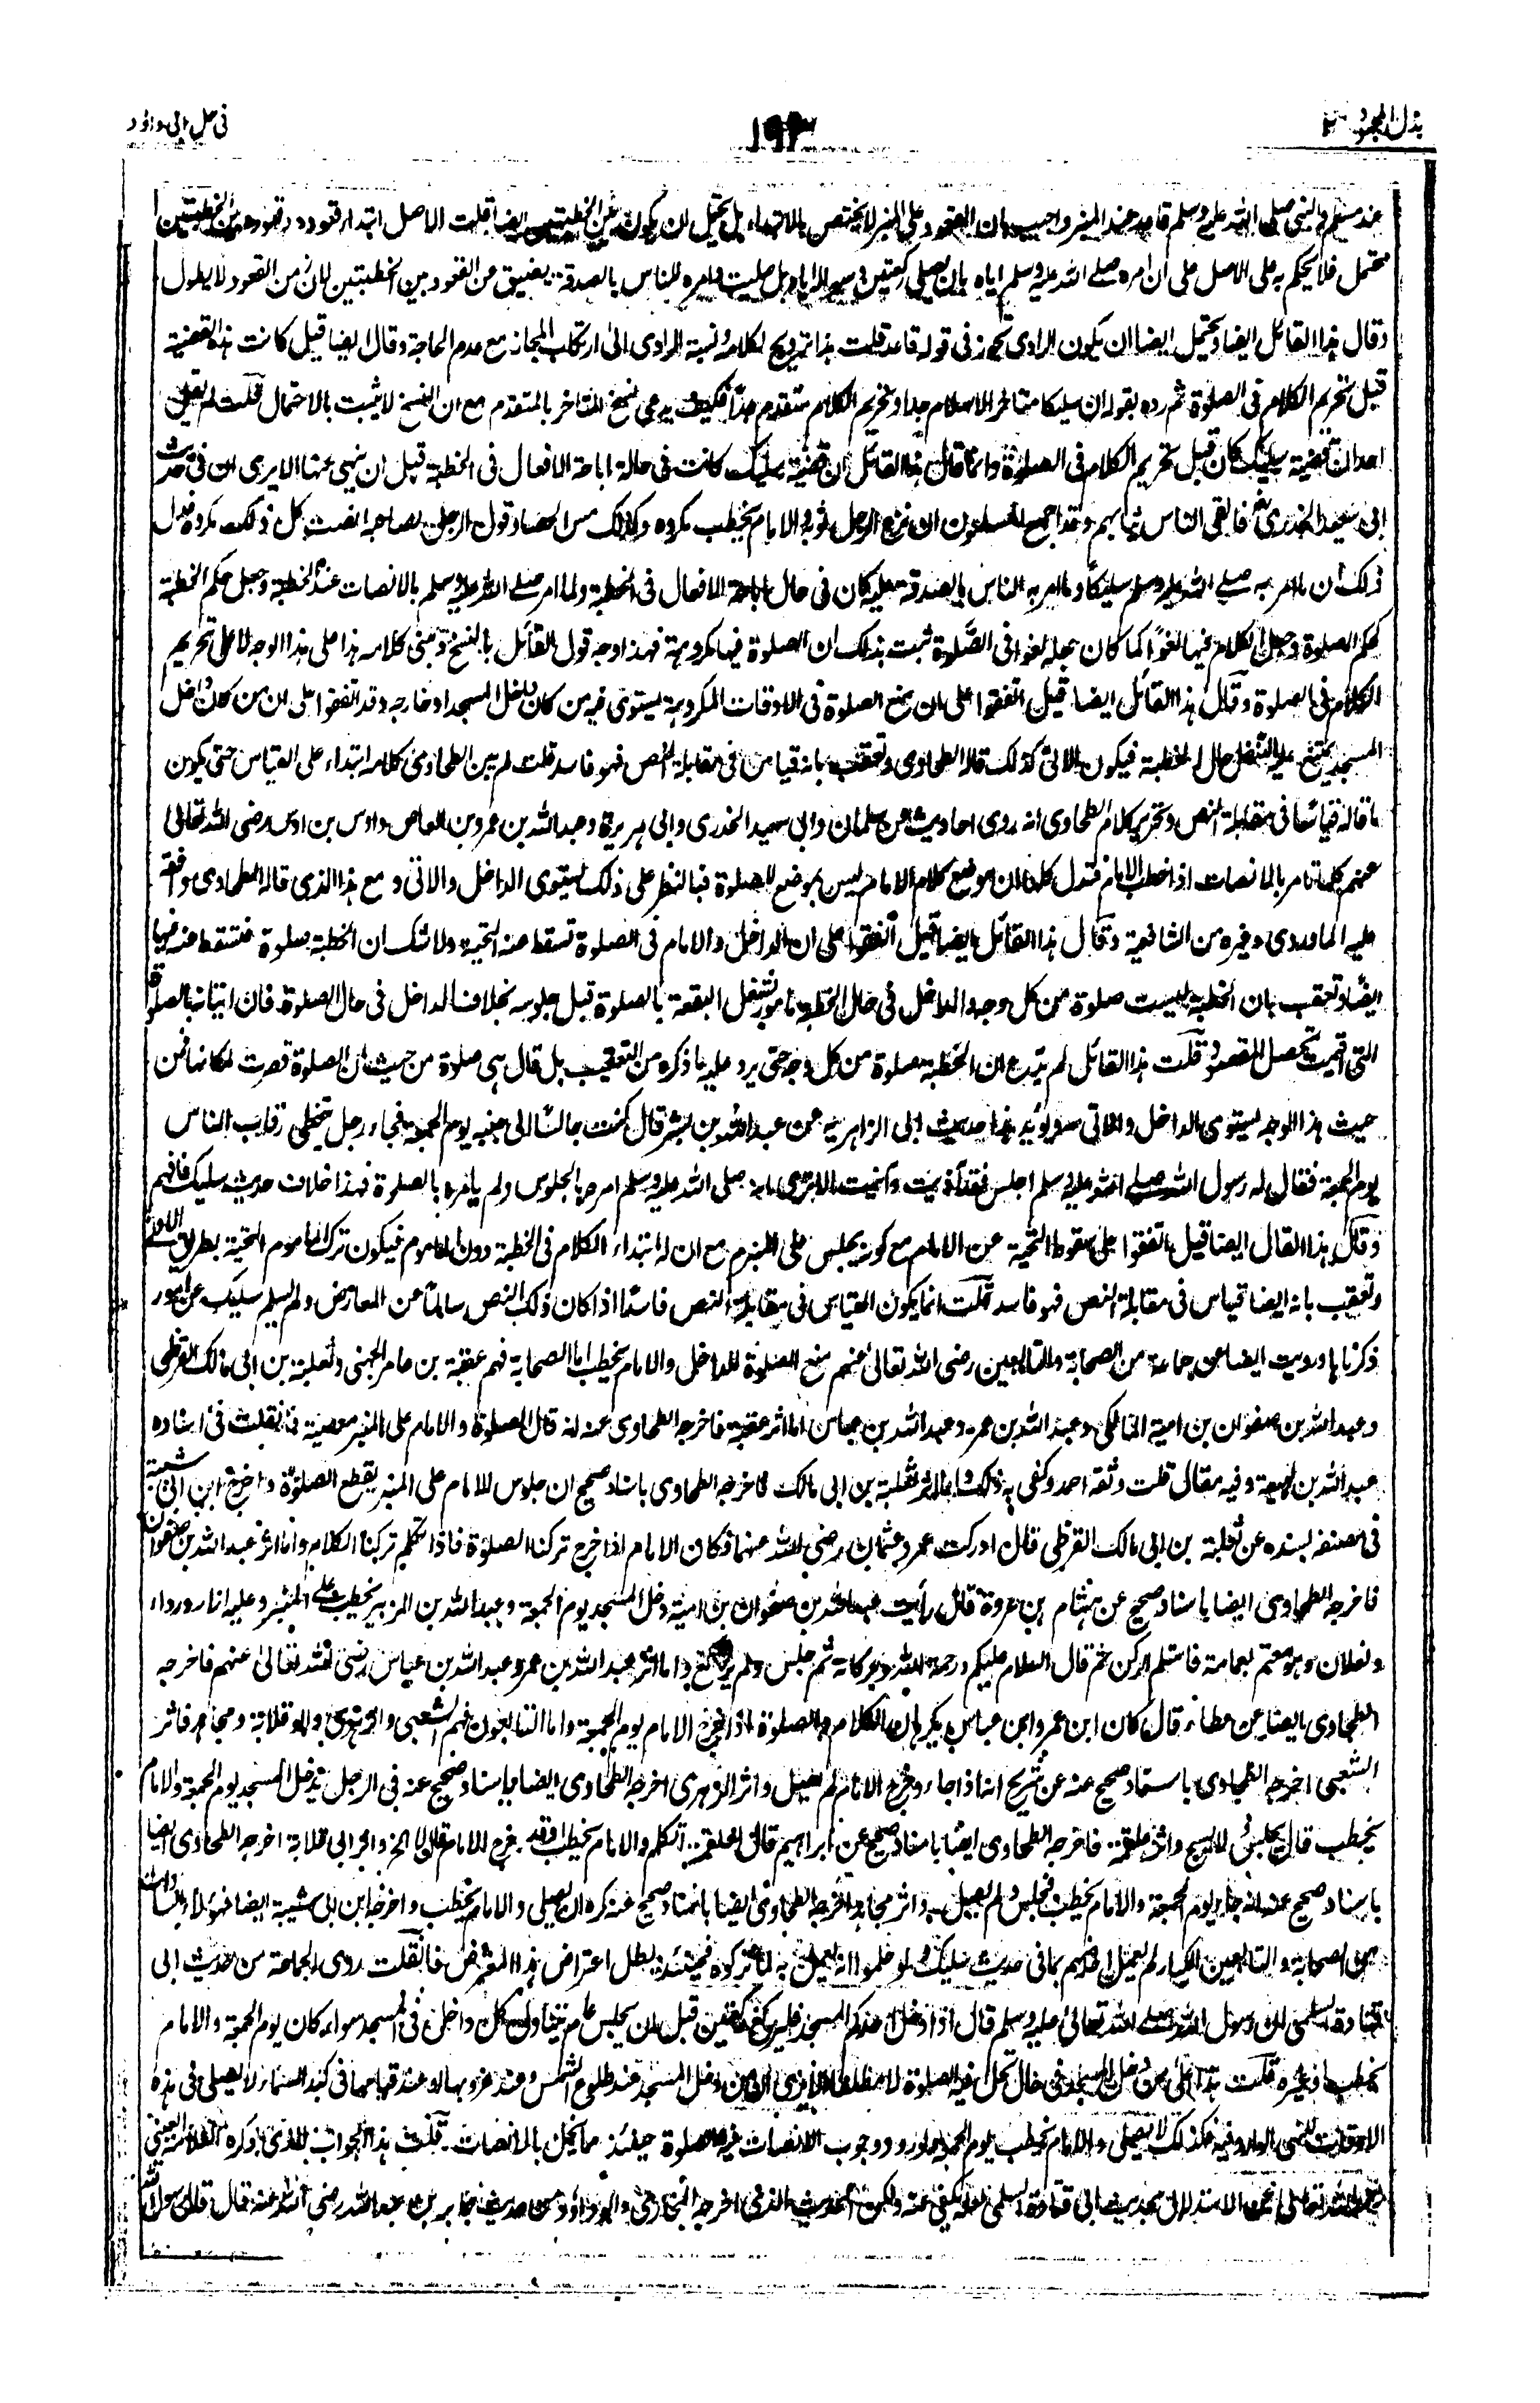 بذل المجهود ٢
١٩٣
في حل ابي داود
عند مسلم والنبي صلى الله عليه وسلم قاعد عند المنبر واجيب بان القعود على المنبر لا يختص بالابتداء بل يحتمل ان يكون بين الخطبتين ايضا قلت الاصل ابتداء قعوده وقعوده بين الخطبتين
محتمل فلا يحكم به على الاصل على ان امره صلے الله عليه وسلم اياه بان يصلي ركعتين وسواله اياه هل صليت وامره للناس بالصدقة يضيق عن القعود بين الخطبتين لان زمن القعود لا يطول
وقال هذا القائل ايضا ويحتمل ايضا ان يكون الراوي تجوز في قوله قاعد قلت هذا ترويج لكلامه ونسبة الراوي الى ارتكاب المجاز مع عدم الحاجة وقال ايضا قيل كانت هذه القضية
قبل تحريم الكلام في الصلوة ثم رده بقوله ان سليكا متاخر الاسلام جدا وتحريم الكلام متقدم جدا فكيف يدعى نسخ المتاخر بالمتقدم مع ان النسخ لا يثبت بالاحتمال قلت لم يقل
احد ان قضية سليك كان قبل تحريم الكلام في الصلوة وانما قال هذا القائل ان قضية سليك كانت في حالة اباحة الافعال في الخطبة قبل ان ينهى عنها الا يرى ان في حديث
ابي سعيد الخدري فالقى الناس ثيابهم وقد اجمع المسلمون ان نزع الرجل ثوبه والامام يخطب مكروه وكذلك مس الحصا وقول الرجل لصاحبه انصت كل ذلك مكروه فدل
ذلك ان ما امر به صلے الله عليه وسلم سليكا وما امر به الناس بالصدقة عليه كان في حال اباحة الافعال في الخطبة ولما امر صلے الله عليه وسلم بالانصات عند الخطبة وجعل حكم الخطبة
كحكم الصلوة وجعل الكلام فيها لغوا كما كان جعله لغوا في الصلوة ثبت بذلك ان الصلوة فيها مكروهة فهذا وجه قول القائل بالنسخ ومبنى كلامه هذا على هذا الوجه لا على تحريم
الكلام في الصلوة وقال هذا القائل ايضا قيل اتفقوا على ان منع الصلوة في الاوقات المكروهة يستوي فيه من كان داخل المسجد او خارجه وقد اتفقوا على ان من كان داخل
المسجد يمتنع عليه التنفل حال الخطبة فيكون الاتي كذلك قاله الطحاوي وتعقب بانه قياس في مقابلة النص فهو فاسد قلت لم يبن الطحاوي كلامه ابتداء على القياس حتى يكون
ما قاله قياسا في مقابلة النص وتحرير كلام الطحاوي انه روى احاديث عن سلمان وابي سعيد الخدري وابي هريرة وعبد الله بن عمرو بن العاص واوس بن اوس رضي الله تعالى
عنهم كلها تامر بالانصات اذا خطب الامام فتدل كلها ان موضع كلام الامام ليس بموضع للصلوة فبالنظر على ذلك يستوي الداخل والاتي و مع هذا الذي قاله الطحاوي وافقه
عليه الماوردي وغيره من الشافعية وقال هذا القائل ايضا قيل اتفقوا على ان الداخل والامام في الصلوة تسقط عنه التحية ولا شك ان الخطبة صلوة فتسقط عنه فيها
ايضا وتعقب بان الخطبة ليست صلوة من كل وجه والداخل في حال الخطبة مامور بشغل البقعة بالصلوة قبل جلوسه بخلاف الداخل في حال الصلوة فان اتيانه بالصلوة
التي اقيمت تحصل المقصود قلت هذا القائل لم يدع ان الخطبة صلوة من كل وجه حتى يرد عليه ما ذكره من التعقيب بل قال هي صلوة من حيث ان الصلوة قصرت لمكانها فمن
حيث هذا الوجه يستوي الداخل والاتي ويؤيد هذا حديث ابي الزاهرية عن عبد الله بن بسر قال كنت جالسا الى جنبه يوم الجمعة فجاء رجل يتخطى رقاب الناس
يوم الجمعة فقال له رسول الله صلے الله عليه وسلم اجلس فقد آذيت وآنيت الا ترى انه صلى الله عليه وسلم امره بالجلوس ولم يامره بالصلوة فهذا خلاف حديث سليك فافهم
وقال هذا القال ايضا قيل اتفقوا على سقوط التحية عن الامام مع كونه يجلس على المنبر مع ان له ابتداء الكلام في الخطبة دون الماموم فيكون ترك الماموم التحية بطريق الاولى
وتعقب بانه ايضا قياس في مقابلة النص فهو فاسد قلت انما يكون القياس في مقابلة النص فاسدا اذا كان ذلك النص سالما عن المعارض ولم يسلم سليك عن امور
ذكرناها ورويت ايضا عن جماعة من الصحابة والتابعين رضى الله تعالى عنهم منع الصلوة للداخل والامام يخطب اما الصحابة فهم عقبة بن عامر الجهني وثعلبة بن ابي مالك القرظي
وعبد الله بن صفوان بن امية المالكي وعبد الله بن عمر وعبد الله بن عباس اما اثر عقبة فاخرجه الطحاوي عنه انه قال الصلوة والامام على المنبر معصية فان قلت في اسناده
عبد الله بن لهيعة وفيه مقال قلت وثقه احمد وكفى به ذلك واما اثر ثعلبة بن ابي مالك فاخرجه الطحاوي باسناد صحيح ان جلوس الامام على المنبر يقطع الصلوة واخرج ابن ابي شيبة
في مصنفه بسنده عن ثعلبة بن ابي مالك القرظي قال ادركت عمر وعثمان رضي الله عنهما فكان الامام اذا خرج تركنا الصلوة فاذا تكلم تركنا الكلام واما اثر عبد الله بن صفوان
فاخرجه الطحاوي ايضا باسناد صحيح عن هشام بن عروة قال رأيت عبد الله بن صفوان بن امية دخل المسجد يوم الجمعة وعبد الله بن الزبير يخطب على المنبر وعليه ازار ورداء
ونعلان وهو معتم بعمامة فاستلم الركن ثم قال السلام عليكم ورحمة الله وبركاته ثم جلس ولم يركع واما اثر عبد الله بن عمر وعبد الله بن عباس رضى الله تعالى عنهم فاخرجه
الطحاوي ايضا عن عطاء قال كان ابن عمر وابن عباس يكرهان الكلام والصلوة اذا خرج الامام يوم الجمعة واما التابعون فهم الشعبي والزهري وابو قلابة ومجاهد فاثر
الشعبي اخرجه الطحاوي باسناد صحيح عنه عن شريح انه اذا جاء وخرج الامام لم يصل واثر الزهري اخرجه الطحاوي ايضا باسناد صحيح عنه في الرجل يدخل المسجد يوم الجمعة والامام
يخطب قال يجلس ولا يسبح واثر علقمة فاخرجه الطحاوي ايضا باسناد صحيح عن ابراهيم قال لعلقمة اتكلم والامام يخطب او قد خرج الامام قال لا الخ واثر ابي قلابة اخرجه الطحاوي ايضا
باسناد صحيح عنه انه جاء يوم الجمعة والامام يخطب فجلس ولم يصل واثر مجاهد اخرجه الطحاوي ايضا باسناد صحيح عنه كره ان يصلي والامام يخطب واخرجه ابن ابي شيبة ايضا فهؤلاء السادات
من الصحابة والتابعين الكبار لم يعمل احد منهم بما في حديث سليك ولو علموا انه يعمل به لما تركوه فحينئذ بطل اعتراض هذا المعترض فان قلت روى الجماعة من حديث ابي
قتادة السلمي ان رسول الله صلے الله تعالى عليه وسلم قال اذا دخل احدكم المسجد فليركع ركعتين قبل ان يجلس عام يتناول كل داخل في المسجد سواء كان يوم الجمعة والامام
يخطب او غيره قلت هذا على من دخل المسجد في حال تحل فيه الصلوة لا مطلقا الا يرى ان من دخل المسجد عند طلوع الشمس وعند غروبها او عند قيامها في كبد السماء لا يصلي في هذه
الاوقات للنهي الوارد فيه فكذلك لا يصلي والامام يخطب يوم الجمعة لورود وجوب الانصات فيه والصلوة حينئذ مما يخل بالانصات. قلت هذا الجواب الذي ذكره العلامة العيني
رحمه الله تعالى عن الاستدلال بحديث ابي قتادة السلمي لعله يكفي عنه ولكن الحديث الذي اخرجه البخاري وابو داود من حديث جابر بن عبد الله رضي الله عنه قال قال رسول الله